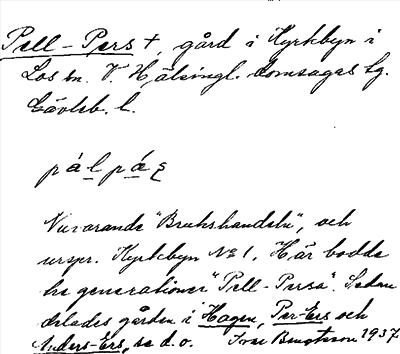 Pell-Pers +, gård i Kyrkbyn i
Los sn. V. Hälsingl. domsagas tg.
Gävleb. l.
pȧl pȧṣ
Nuvarande "Brukshandeln", och
urspr. Kyrkbyn No 1. Här bodde
tre generationer "Pell-Persa". Sedan
delades gården i Hagen, Per-Ers och
Anders-Ers, se d.o. Ivar Bengtsson 1937